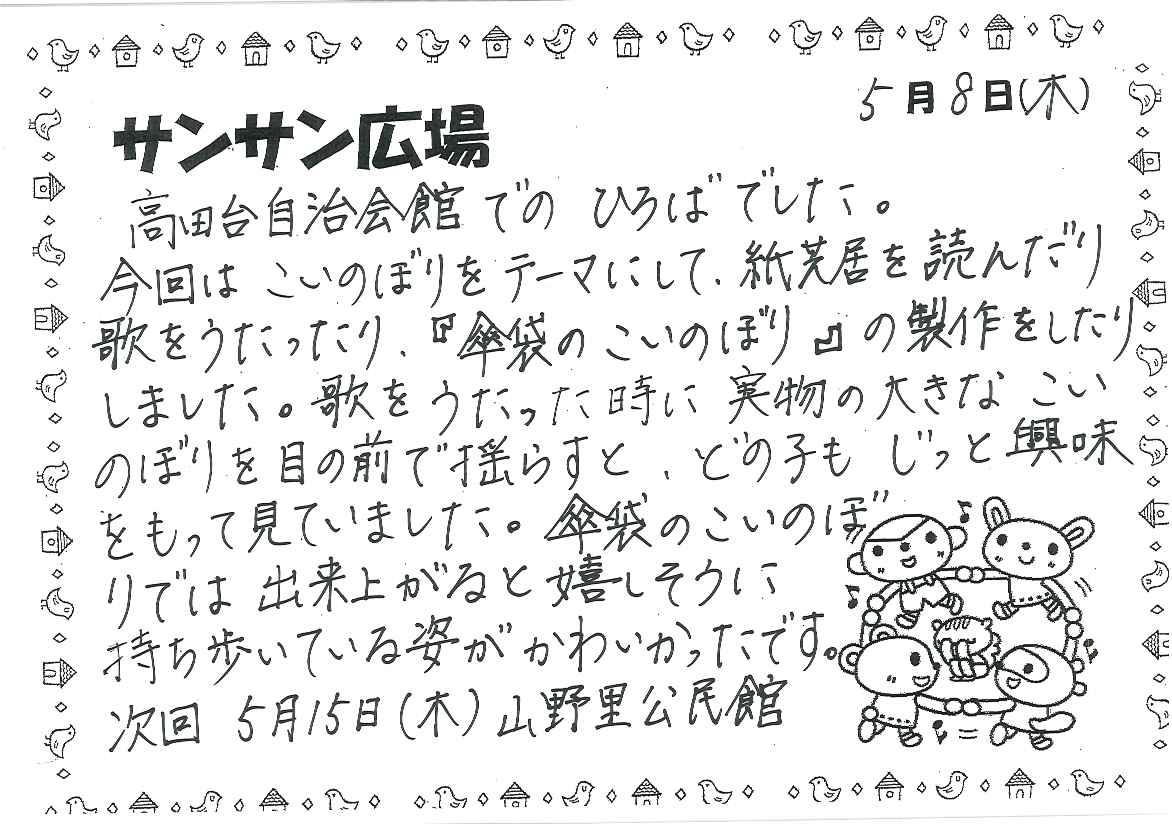 5月8日(木)
サンサン広場
高田台自治会館での ひろばでした。
今回は こいのぼりをテーマにして、紙芝居を読んだり
歌をうたったり、『傘袋のこいのぼり』の製作をしたり
しました。歌をうたった時に実物の大きなこい
のぼりを目の前で揺らすと、どの子も じっと興味
をもって見ていました。傘袋のこいのぼ
りでは出来上がると嬉しそうに
持ち歩いている姿がかわいかったです。
次回 5月15日(木)山野里公民館